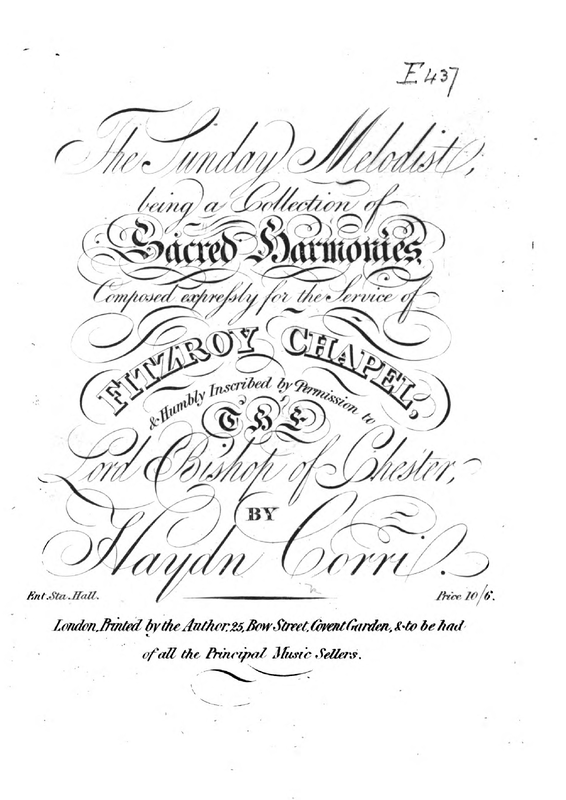 E 437
The Sunday Melodist,
being a Collection of
Sacred Harmonies
Composed expreſsly for the Service of
FITZROY CHAPEL,
& Humbly Inscribed by Permission to
THE
Lord Bishop of Chester,
BY
Haydn Corri.
Ent. Sta. Hall. Price 10/6.
London, Printed by the Author, 25, Bow Street, Covent Garden, & to be had
of all the Principal Music Sellers.